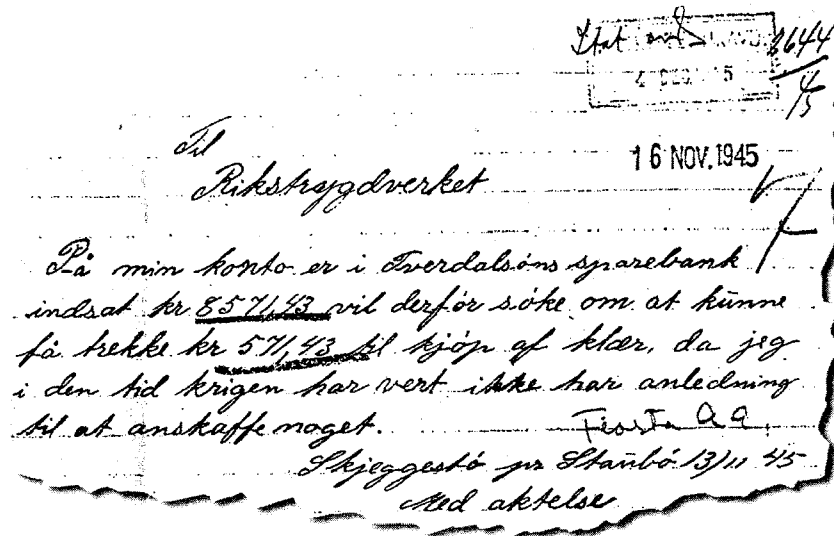 3644
4 DES 5
4/5
Til
16 NOV. 1945
Rikstrygdverket
På min konto er i Tverdalsöns sparebank
indsat kr 8571,43 vil derfor söke om at kunne
få trekke kr 571,43 til kjöp af klær, da jeg
i den tid krigen har vert ikke har anledning
til at anskaffe noget.
Flosta A A.
Skjeggestö pr Staubö 13/11 45
Med aktelse